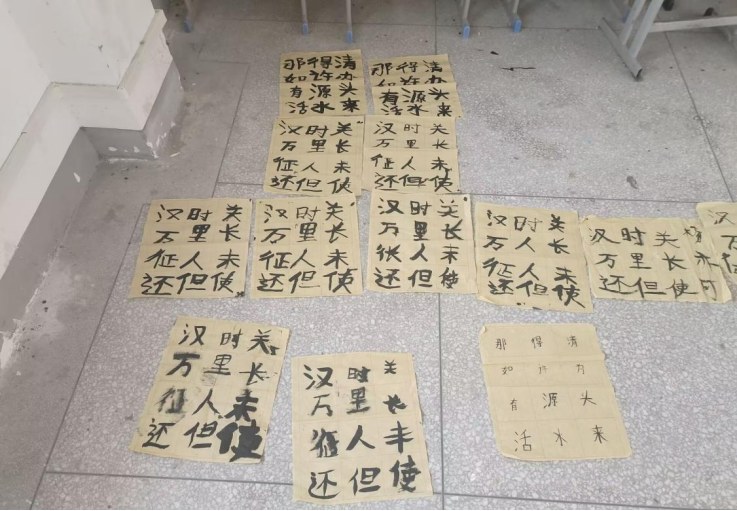 那得清
如许办
有源头
活水来
那得清
如许办
有源头
活水来
汉时关
万里长
征人未
还但使
汉时关
万里长
征人未
还但使
汉时关
万里长
征人未
还但使
汉时关
万里长
征人未
还但使
汉时关
万里长
张人未
还但使
汉时关
万人长
征人未
还但使
汉时关
万里长
还但使
汉
万
汉时关
万里长
征人未
还但使
汉时关
万里长
征人丰
还但使
那得清
如许为
有源头
活水来